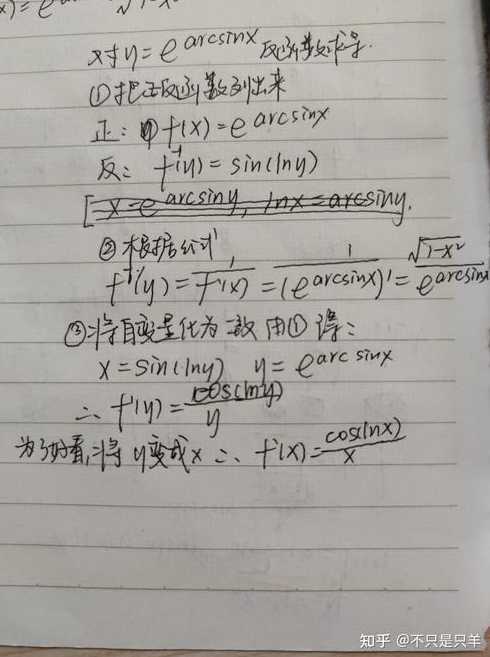 x)=e √1-x²
对y=e^arcsinx 反函数求导.
①把正反函数列出来
正: f(x)=e^arcsinx
反: f⁻¹(y)=sin(lny)
[x=e^arcsiny, lnx=arcsiny.
②根据公式,
f⁻¹'(y)=1/f'(x)=1/(e^arcsinx)'=√1-x²/e^arcsinx
③将自变量化为一致 由①得:
x=sin(lny) y=e^arcsinx
∴ f'(y)=cos(lny)/y
为了好看,将y变成x ∴ f'(x)=cos(lnx)/x
知乎 @不只是只羊